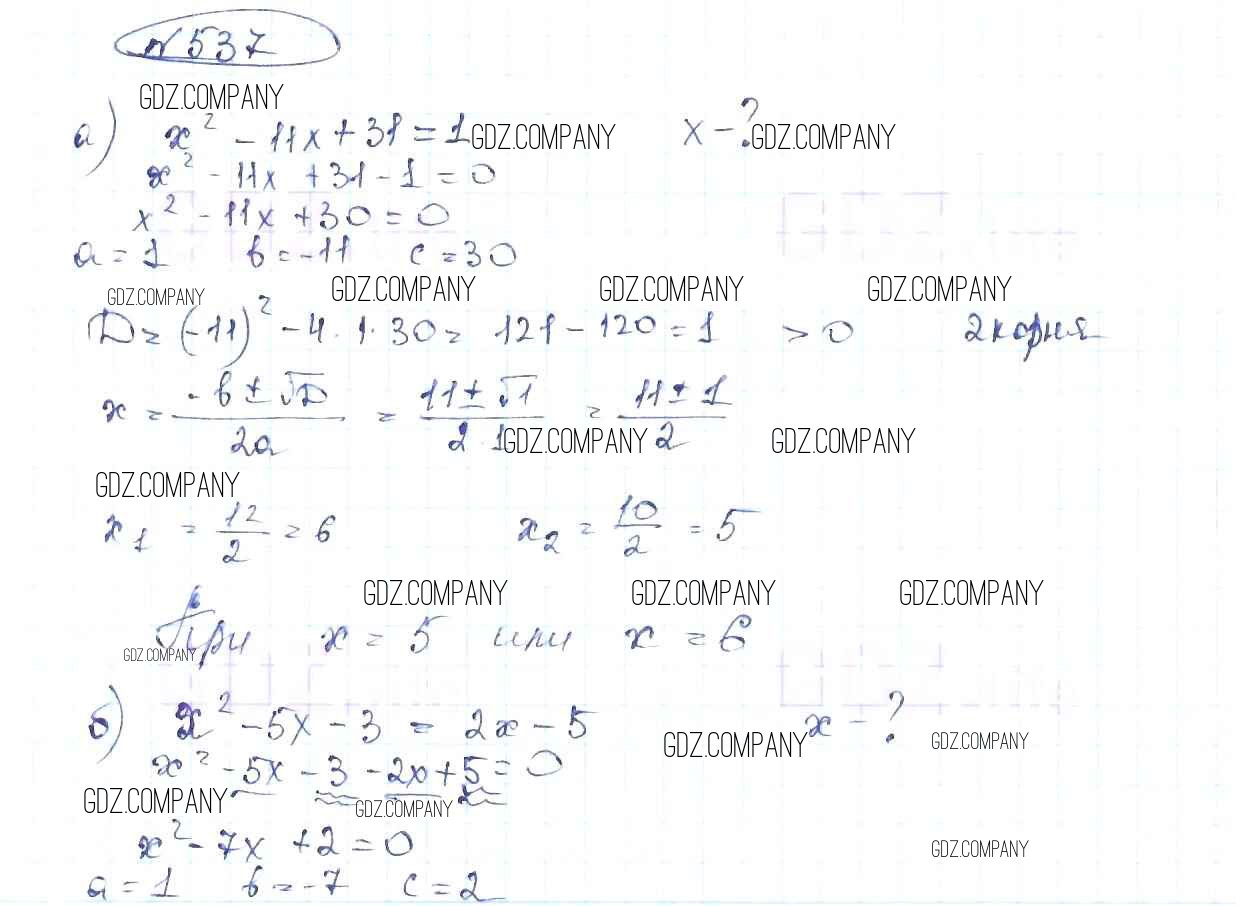 № 537
GDZ.COMPANY
а) x² - 11x + 31 = 1 GDZ.COMPANY x - ? GDZ.COMPANY
x² - 11x + 31 - 1 = 0
x² - 11x + 30 = 0
a = 1 b = -11 c = 30
GDZ.COMPANY GDZ.COMPANY GDZ.COMPANY GDZ.COMPANY
D = (-11)² - 4 · 1 · 30 = 121 - 120 = 1 > 0 2 корня
x = (-b ± √D)/(2a) = (11 ± √1)/(2 · 1) = (11 ± 1)/2
GDZ.COMPANY GDZ.COMPANY
GDZ.COMPANY
x₁ = 12/2 = 6 x₂ = 10/2 = 5
GDZ.COMPANY GDZ.COMPANY GDZ.COMPANY
При x = 5 или x = 6
GDZ.COMPANY
б) x² - 5x - 3 = 2x - 5 GDZ.COMPANY x - ? GDZ.COMPANY
x² - 5x - 3 - 2x + 5 = 0
GDZ.COMPANY GDZ.COMPANY
x² - 7x + 2 = 0 GDZ.COMPANY
a = 1 b = -7 c = 2